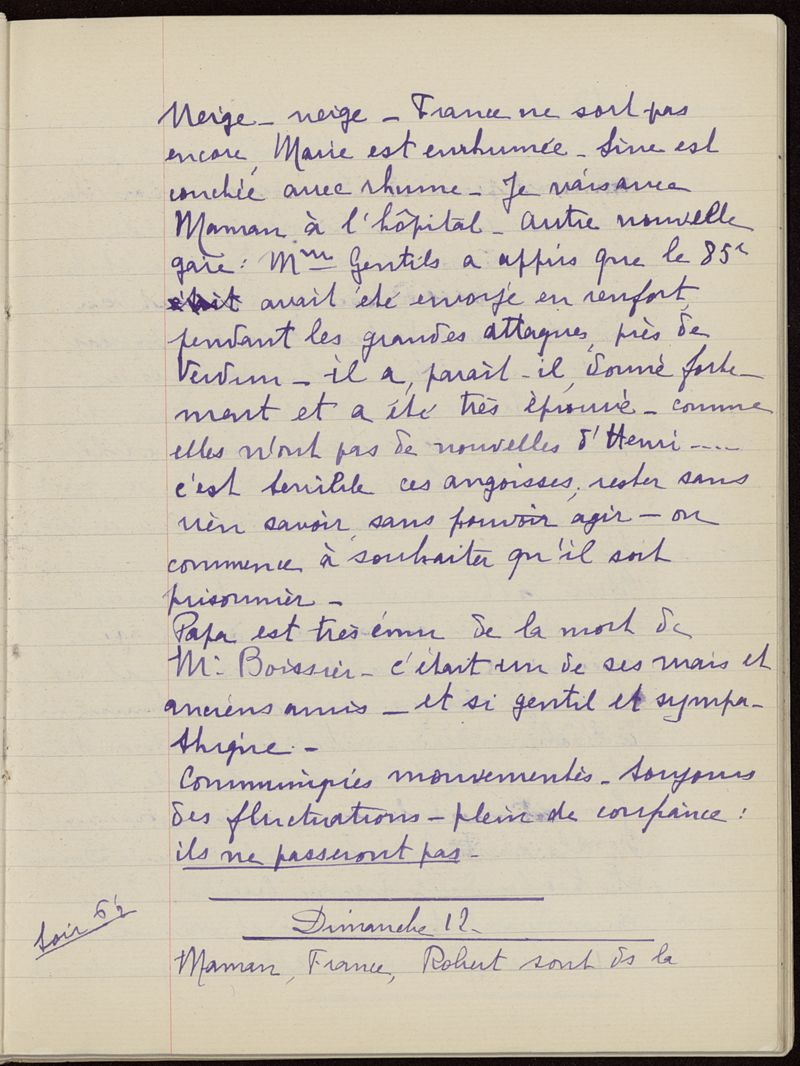 Neige – neige – France ne sort pas
encore, Marie est enrhumée – Line est
couchée avec rhume – Je vais avec
Maman à l'hôpital – autre nouvelle
gaie : Mme Gentils a appris que le 85e
était avait été envoyé en renfort,
pendant les grandes attaques, près de
Verdun – il a, paraît-il, donné forte-
ment et a été très éprouvé – comme
elles n'ont pas de nouvelles d'Henri ....
c'est terrible ces angoisses, rester sans
rien savoir, sans pouvoir agir – on
commence à souhaiter qu'il soit
prisonnier –
Papa est très ému de la mort de
Mr Boissier – c'était un de ses vrais et
anciens amis – et si gentil et sympa-
thique –
Communiqués mouvementés – toujours
des fluctuations – plein de confiance :
ils ne passeront pas –
Dimanche 12 –
Soir 6h
Maman, France, Robert sont ds la